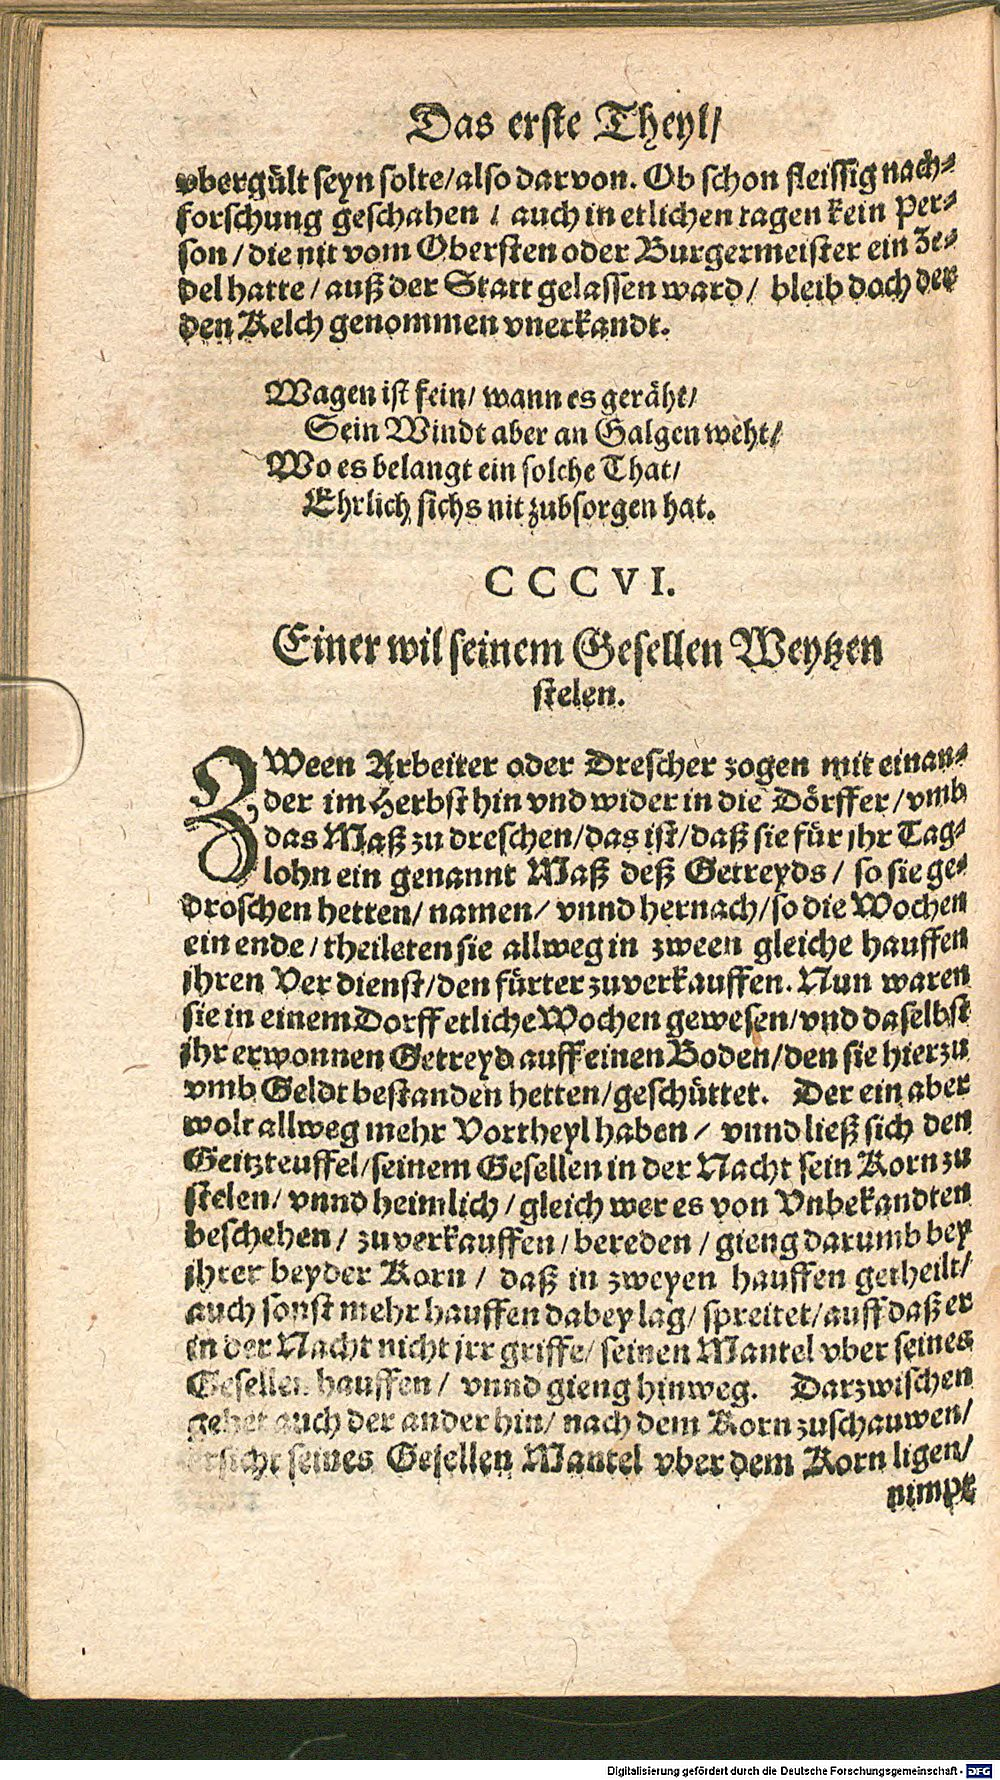 Das erste Theyl/
vbergült seyn solte/also darvon. Ob schon fleissig nach-
forschung geschahen / auch in etlichen tagen kein Per-
son / die nit vom Obersten oder Burgermeister ein Ze-
del hatte / auß der Statt gelassen ward / bleib doch der
den Kelch genommen vnerkandt.
Wagen ist fein/ wann es geräht/
Sein Windt aber an Galgen weht/
Wo es belangt ein solche That/
Ehrlich sichs nit zubsorgen hat.
CCCVI.
Einer wil seinem Gesellen Weytzen
stelen.
ZWeen Arbeiter oder Drescher zogen mit einan-
der im Herbst hin vnd wider in die Dörffer / vmb
das Maß zu dreschen/das ist/daß sie für jhr Tag-
lohn ein genannt Maß deß Getreyds / so sie ge-
droschen hetten/ namen/ vnnd hernach/so die Wochen
ein ende / theileten sie allweg in zween gleiche hauffen
jhren Verdienst/den fürter zuverkauffen. Nun waren
sie in einem Dorff etliche Wochen gewesen/vnd daselbst
jhr erwonnen Getreyd auff einen Boden/den sie hierzu
vmb Geldt bestanden hetten/geschüttet. Der ein aber
wolt allweg mehr Vortheyl haben / vnnd ließ sich den
Geitzteuffel/seinem Gesellen in der Nacht sein Korn zu
stelen/ vnnd heimlich / gleich wer es von Vnbekandten
beschehen / zuverkauffen / bereden / gieng darumb bey
jhrer beyder Korn / daß in zweyen hauffen getheilt/
auch sonst mehr hauffen dabey lag/ spreitet/auff daß er
in der Nacht nicht jrr griffe/ seinen Mantel vber seines
Gesellen hauffen / vnnd gieng hinweg. Darzwischen
gehet auch der ander hin/ nach dem Korn zuschauwen/
ersicht seines Gesellen Mantel vber dem Korn ligen/
nimpt
Digitalisierung gefördert durch die Deutsche Forschungsgemeinschaft - DFG